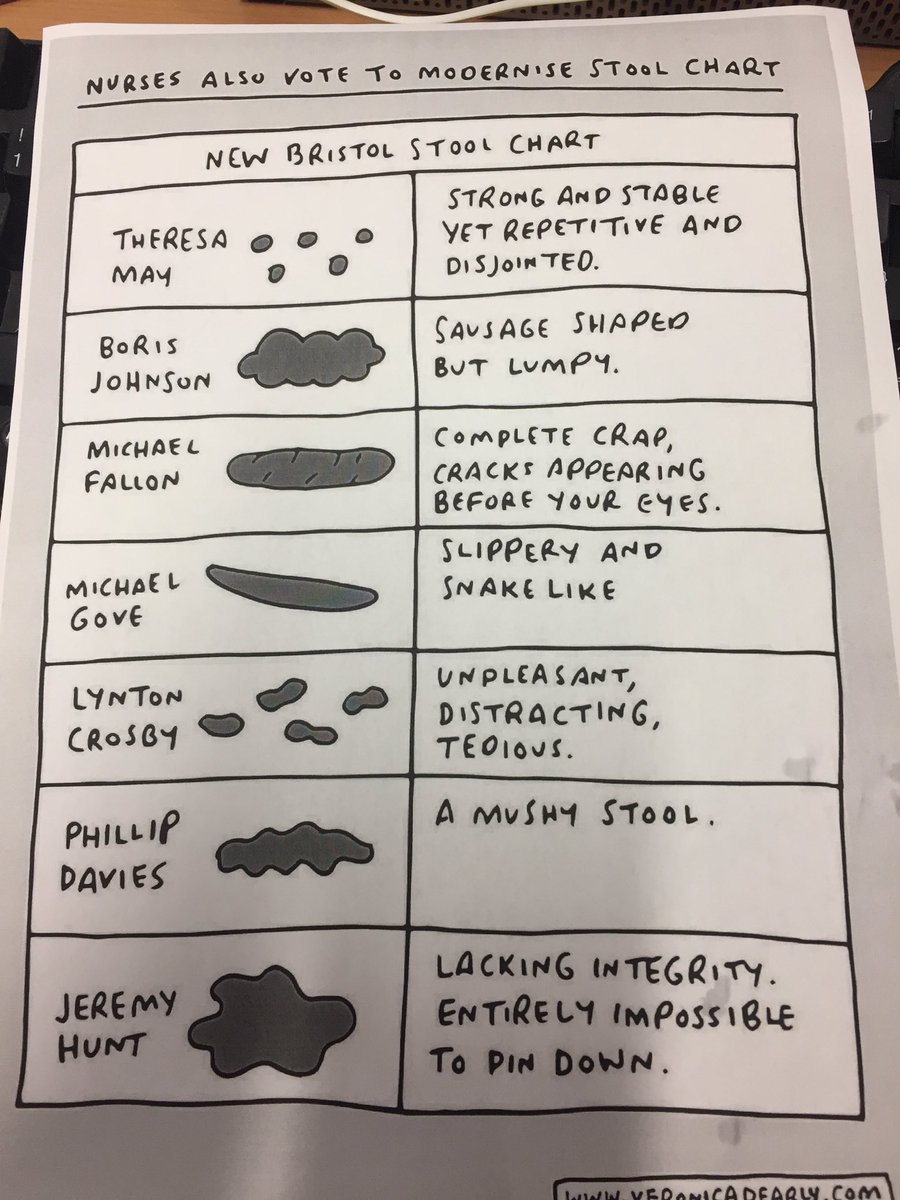 NURSES ALSO VOTE TO MODERNISE STOOL CHART
NEW BRISTOL STOOL CHART
THERESA
MAY
STRONG AND STABLE
YET REPETITIVE AND
DISJOINTED.
BORIS
JOHNSON
SAUSAGE SHAPED
BUT LUMPY.
MICHAEL
FALLON
COMPLETE CRAP,
CRACKS APPEARING
BEFORE YOUR EYES.
MICHAEL
GOVE
SLIPPERY AND
SNAKE LIKE
LYNTON
CROSBY
UNPLEASANT,
DISTRACTING,
TEDIOUS.
PHILLIP
DAVIES
A MUSHY STOOL.
JEREMY
HUNT
LACKING INTEGRITY.
ENTIRELY IMPOSSIBLE
TO PIN DOWN.
WWW.VERONICADEARLY.COM